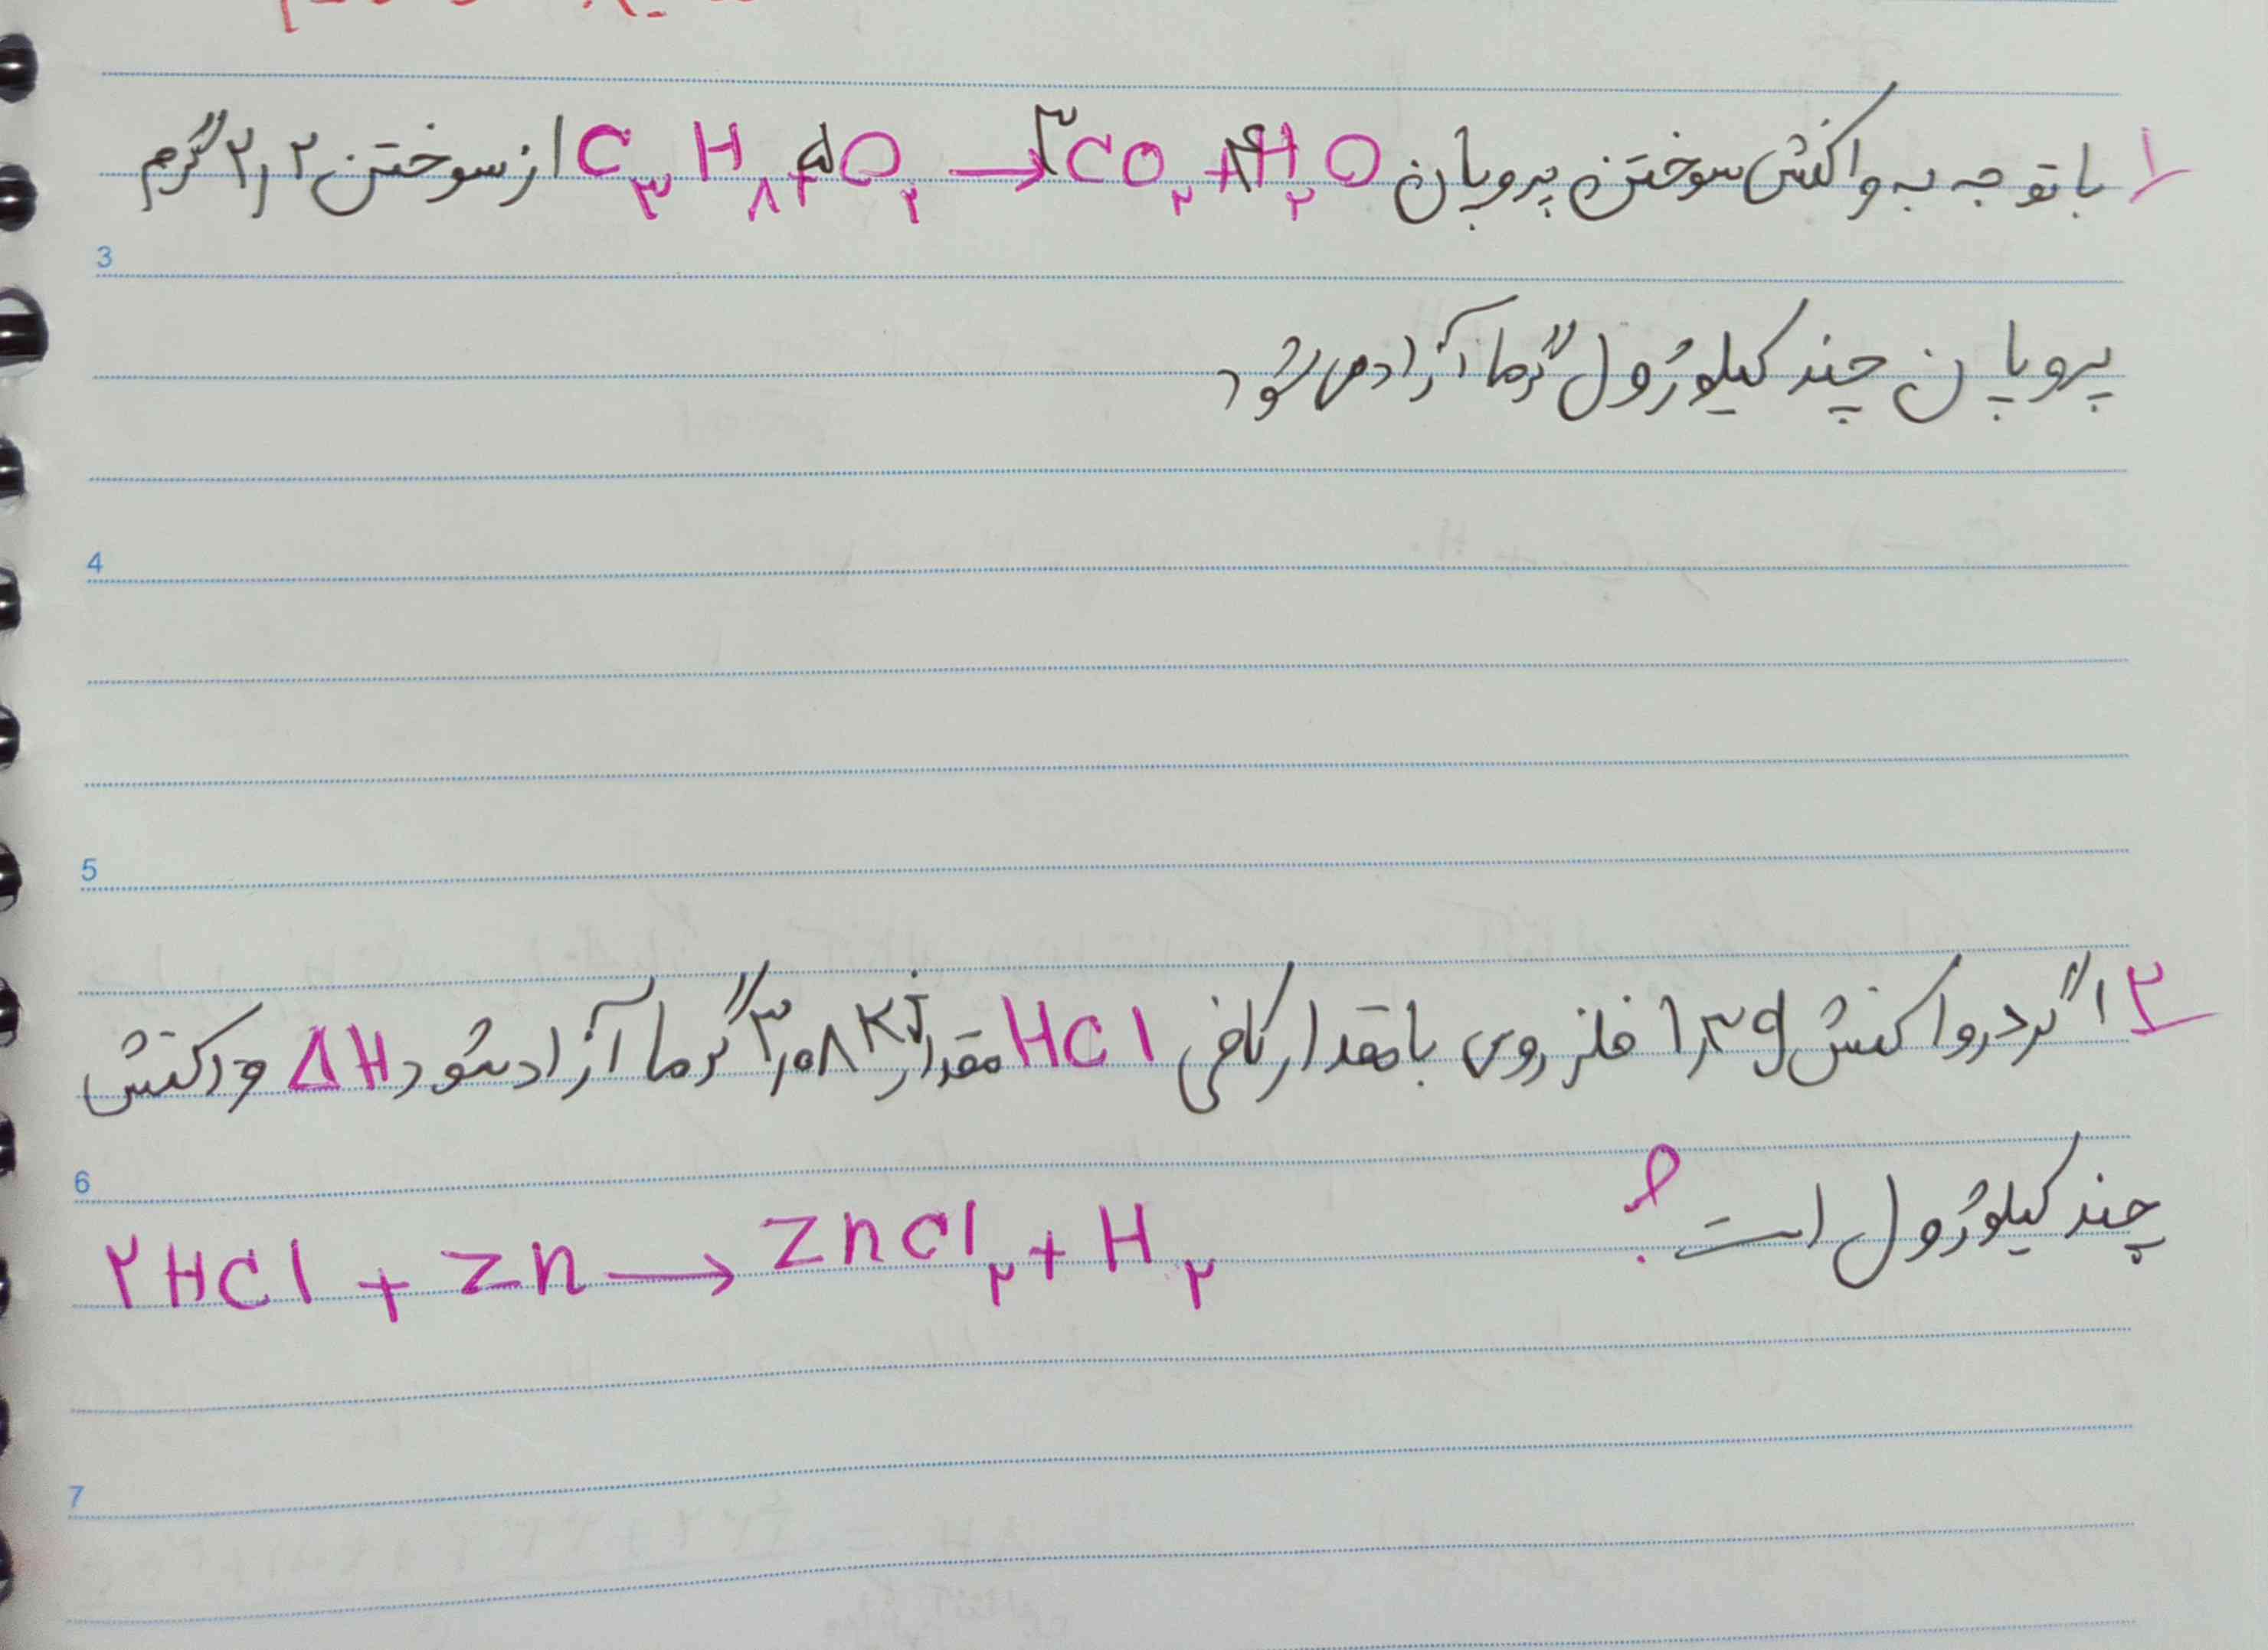 ۱ با توجه به واکنش سوختن پروپان C۳H۸+۵O۲ → ۳CO۲+۴H۲O از سوختن ۲٫۲ گرم
3
پروپان چند کیلوژول گرما آزاد می شود
4
5
۲ اگر در واکنش ۱٫۳g فلز روی با مقدار کافی HCl مقدار ۳٫۰۸KJ گرما آزاد شود ΔH ورکنش
6
چند کیلوژول است؟
۲HCl + Zn → ZnCl۲ + H۲
7